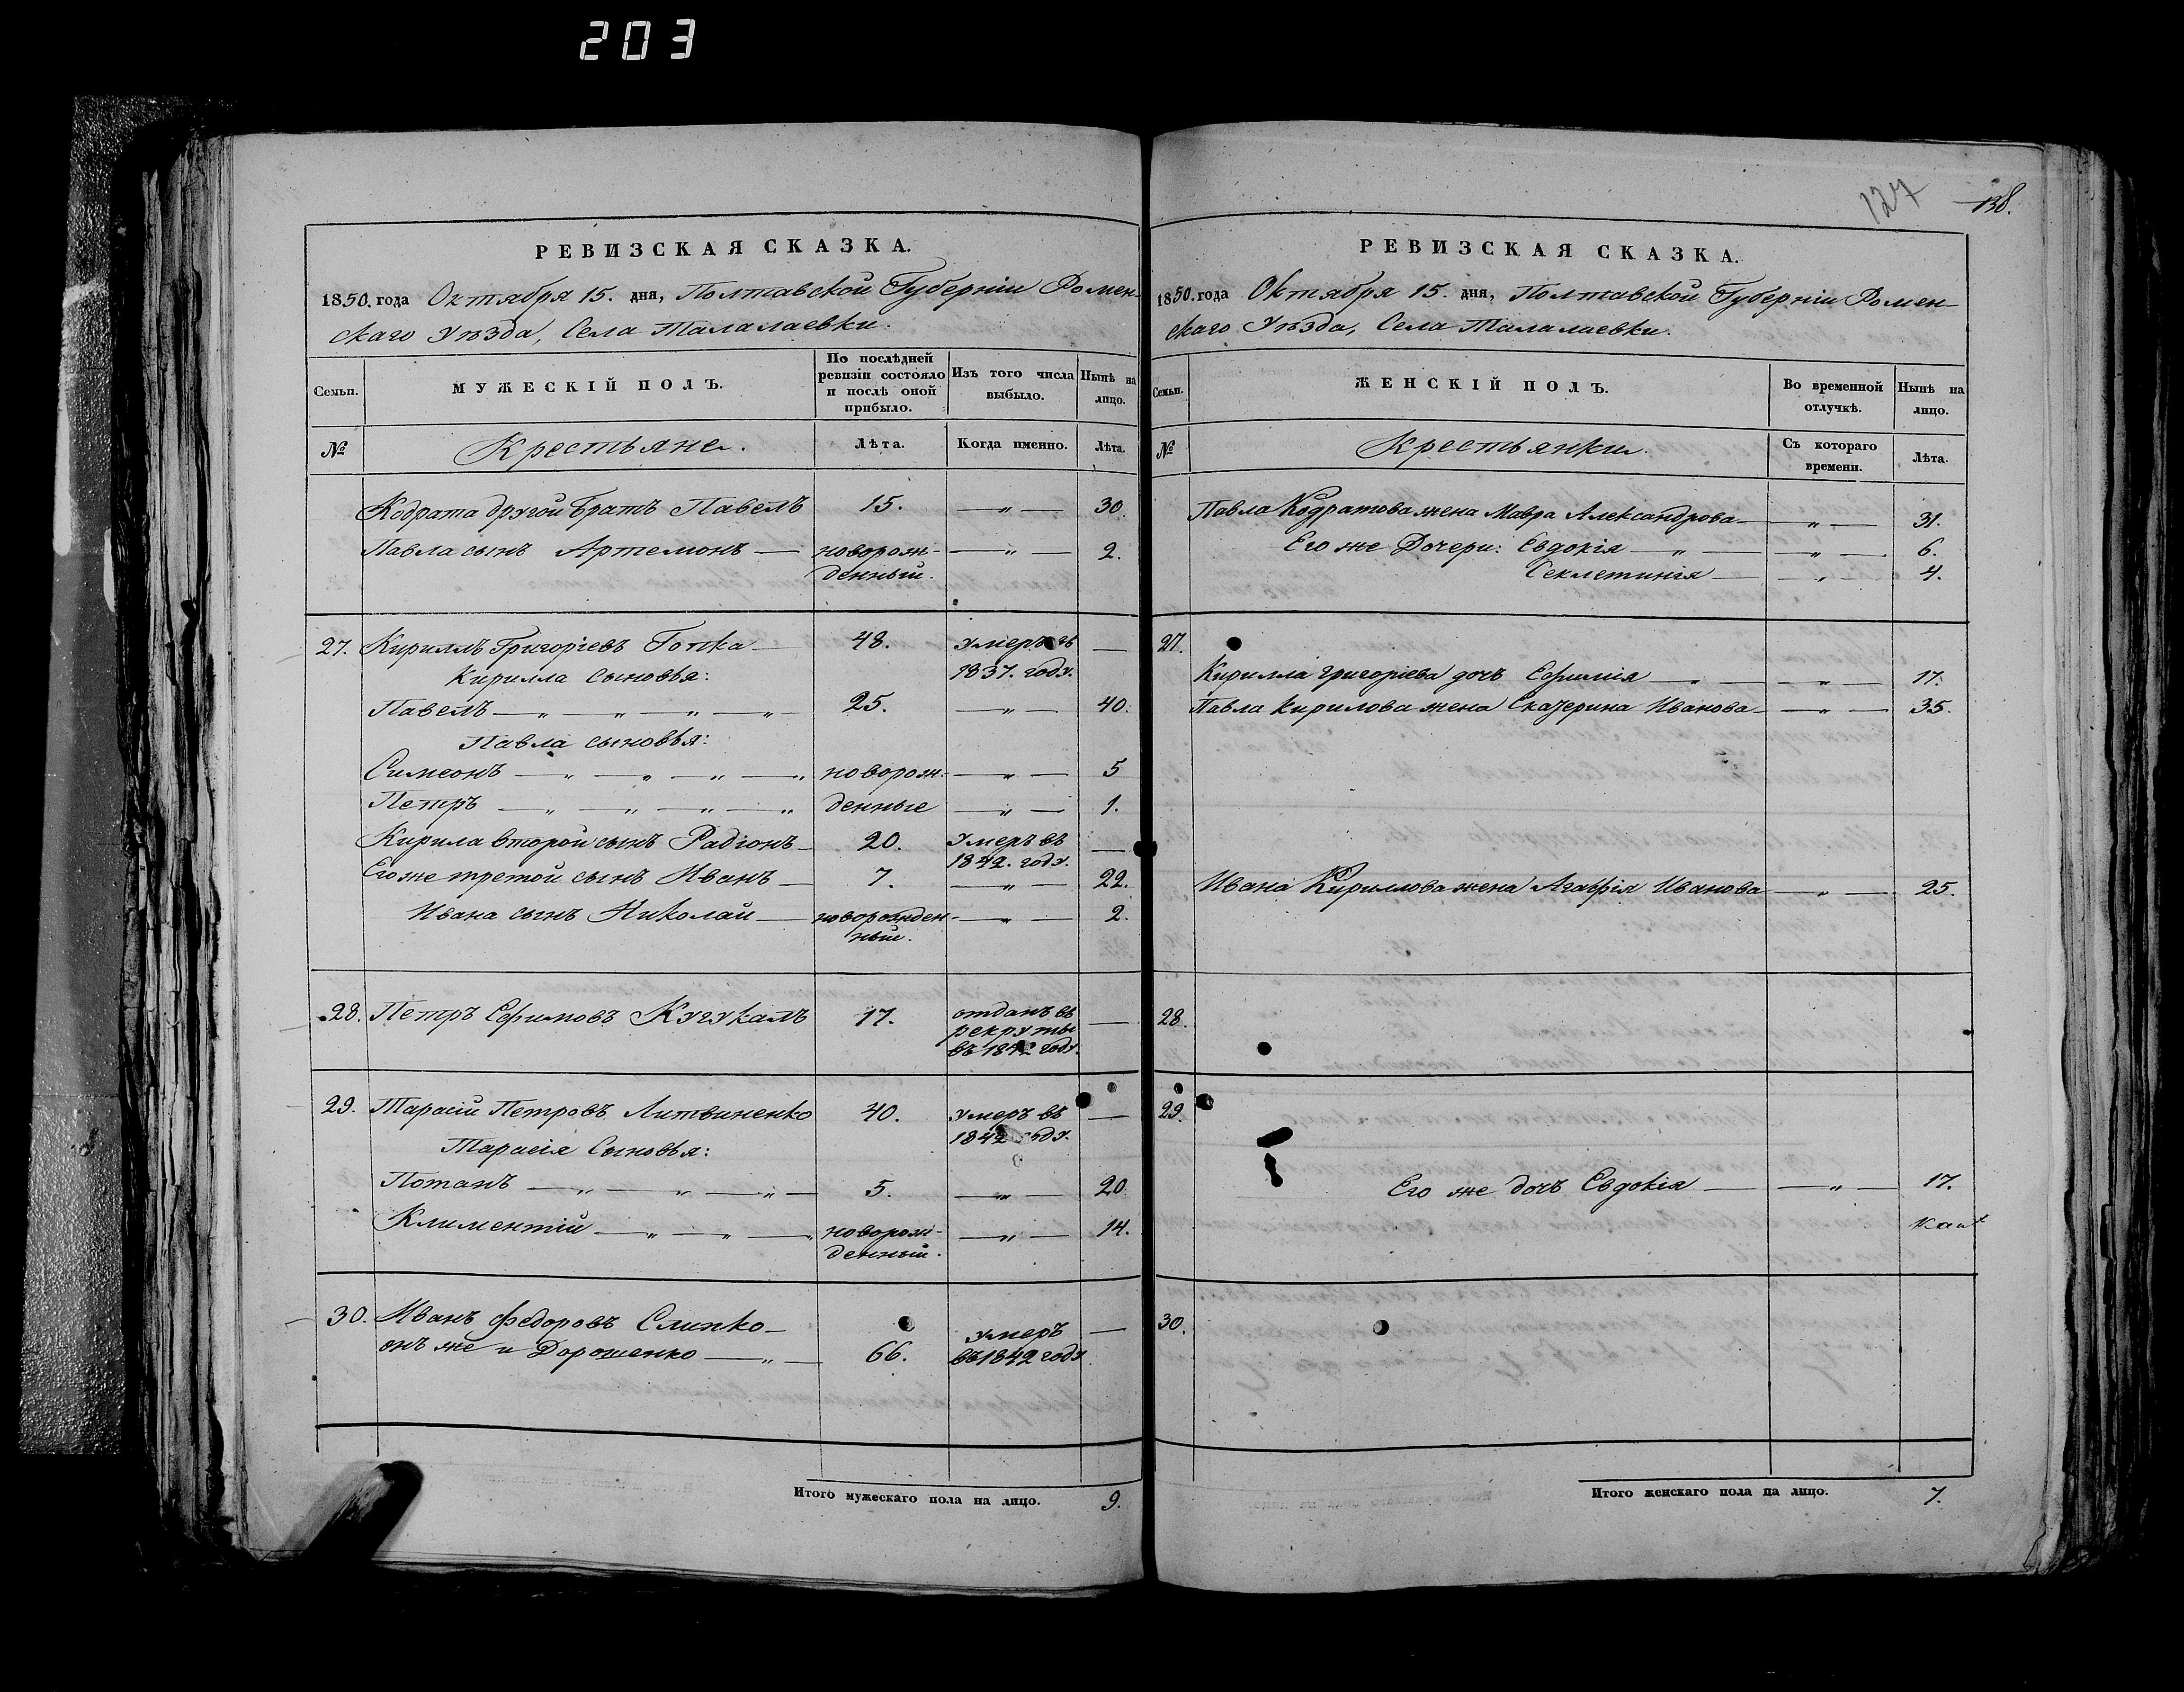 203
127
138.
РЕВИЗСКАЯ СКАЗКА.
1850. года Октября 15. дня, Полтавской Губерніи Ромен-
скаго Уѣзда, Села Талалаевки.
Семьи.
МУЖЕСКІЙ ПОЛЪ.
По послѣдней ревизіи состояло и послѣ оной прибыло.
Изъ того числа выбыло.
Нынѣ на лицо.
№
Крестьяне.
Лѣта.
Когда именно.
Лѣта.
Кодрата другой братъ Павелъ 15. — „ — 30.
Павла сынъ Артемонъ — новорож- — „ — 2.
денный.
27. Кириллъ Григоріевъ Гопка — 48. умеръ въ —
Кирилла Сыновья: 1837. году.
Павелъ — „ — „ — „ — „ 25. — „ — 40.
Павла сыновья:
Симеонъ — „ — „ — „ — „ новорож- — „ — 5
Петръ — „ — „ — „ — „ денные — „ — 1.
Кирила второй сынъ Радіонъ — 20. умеръ въ —
1842. году.
Его же третой сынъ Иванъ — 7. — „ — 22.
Ивана сынъ Николай — новорожден- — „ — 2.
ный.
28. Петръ Ефимовъ Кугукалъ 17. отданъ въ —
рекруты
въ 1842 году.
29. Тарасій Петровъ Литвиненко 40. умеръ въ —
Тарасія Сыновья: 1842 году.
Потапъ — „ — „ — „ — 5. — „ — 20.
Климентій — „ — „ — „ новорож- — „ — 14.
денный.
30. Иванъ Федоровъ Слипко —
онъ же и Дорошенко — „ — 66. умеръ —
въ 1842 году
Итого мужескаго пола на лицо. 9.
РЕВИЗСКАЯ СКАЗКА.
1850. года Октября 15. дня, Полтавской Губерніи Ромен-
скаго Уѣзда, Села Талалаевки.
Семьи.
ЖЕНСКІЙ ПОЛЪ.
Во временной отлучкѣ.
Нынѣ на лицо.
№
Крестьянки.
Съ котораго времени.
Лѣта.
Павла Кодратова жена Мавра Александрова — „ — 31.
Его же Дочери: Евдокія — „ — „ — 6.
Секлетинія — „ — 4.
27.
Кирилла Григоріева дочь Ефимія — „ — „ — 17.
Павла Кирилова жена Екатерина Иванова — „ — 35.
Ивана Кириллова жена Агафія Иванова — „ — 25.
28.
29.
Его же дочь Евдокія — „ — 17.
30.
Итого женскаго пола на лицо. 7.